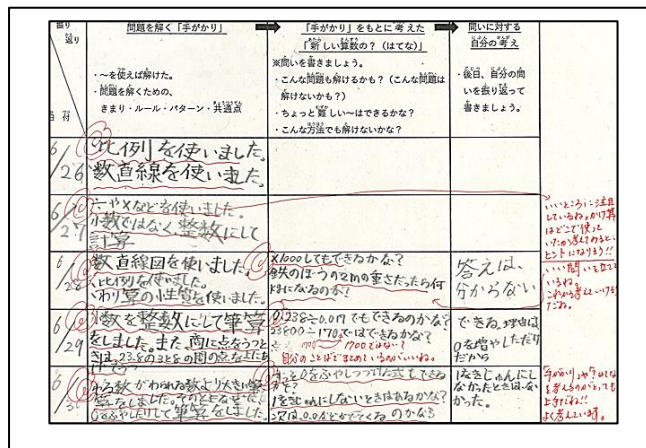 振り返り
日付
問題を解く「手がかり」
・～を使えば解けた。
・問題を解くための、
きまり・ルール・パターン・共通点
「手がかり」をもとに考えた
「新しい算数の？（はてな）」
※問いを書きましょう。
・こんな問題も解けるかも？（こんな問題は
解けないかも？）
・ちょっと難しい～はできるかな？
・こんな方法でも解けないかな？
問いに対する
自分の考え
・後日、自分の問
いを振り返って
書きましょう。
6/26
比例を使いました。
数直線を使いました。
6/27
÷や×などを使いました。
小数ではなく整数にして
計算
いいところに注目
しているね。かけ算
はどこで使って
ヒントになりそう!!
6/28
数直線図を使いました。
比例を使いました。
わり算の性質を使いました。
×1000してもできるかな？
鉄のぼうの2mの重さだったら何
答えは、
分からない
いい問いを立て
ているね。
6/29
小数を整数にして筆算
をしました。また、商に点をうつと
きは、23.8の3と8の間の点を上にあ
0.238÷0.017でもできるのかな？
23800÷170ではできるかな？
1700ではない？
自分のことばでまとめているのがいいね。
できる。理由は、
0を増やしただけ
だから
わる数がわられる数より大きい筆
算をしました。
筆算をしました。
もっと0をふやしつづけた式もできる
かな？
1を基準にしないときはあるかな？
次は、0.0などがでてくるのかな？
1を基じゅんにし
なかったときはな
かった。
上手だね!!
よく考えています。